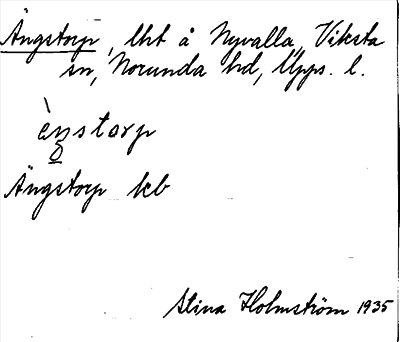 Ängstorp, lht å Nyvalla, Viksta
sn, Norunda hd, Upps. l.
èŋstorp
Ängstorp kb
Stina Holmström 1935